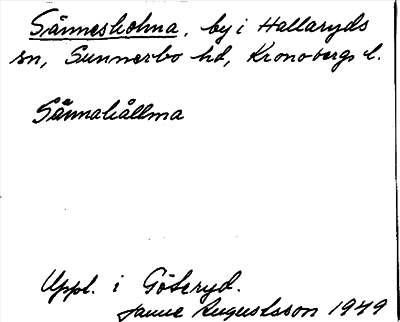 Sännesholma, by i Hallaryds
sn, Sunnerbo hd, Kronobergs l.
Sånnahållma
Uppl. i Göteryd.
Janne Augustsson 1949